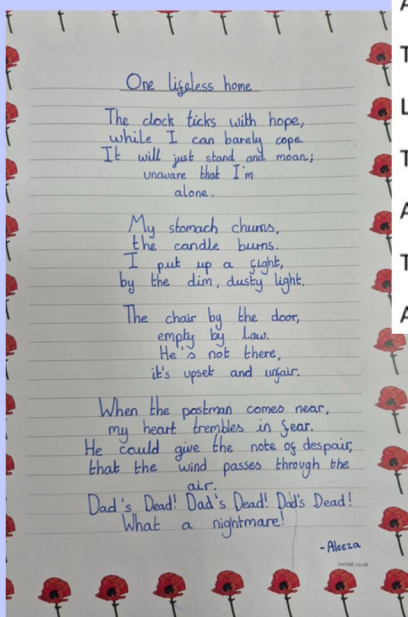 One lifeless home
The clock ticks with hope,
while I can barely cope.
It will just stand and moan;
unaware that I'm
alone.
My stomach churns,
the candle burns.
I put up a fight,
by the dim, dusty light.
The chair by the door,
empty by Law.
He's not there,
it's upset and unfair.
When the postman comes near,
my heart trembles in fear.
He could give the note of despair,
that the wind passes through the
air.
Dad's Dead! Dad's Dead! Dad's Dead!
What a nightmare!
-Aleeza
twinkl.co.uk
A
T
L
T
A
T
A